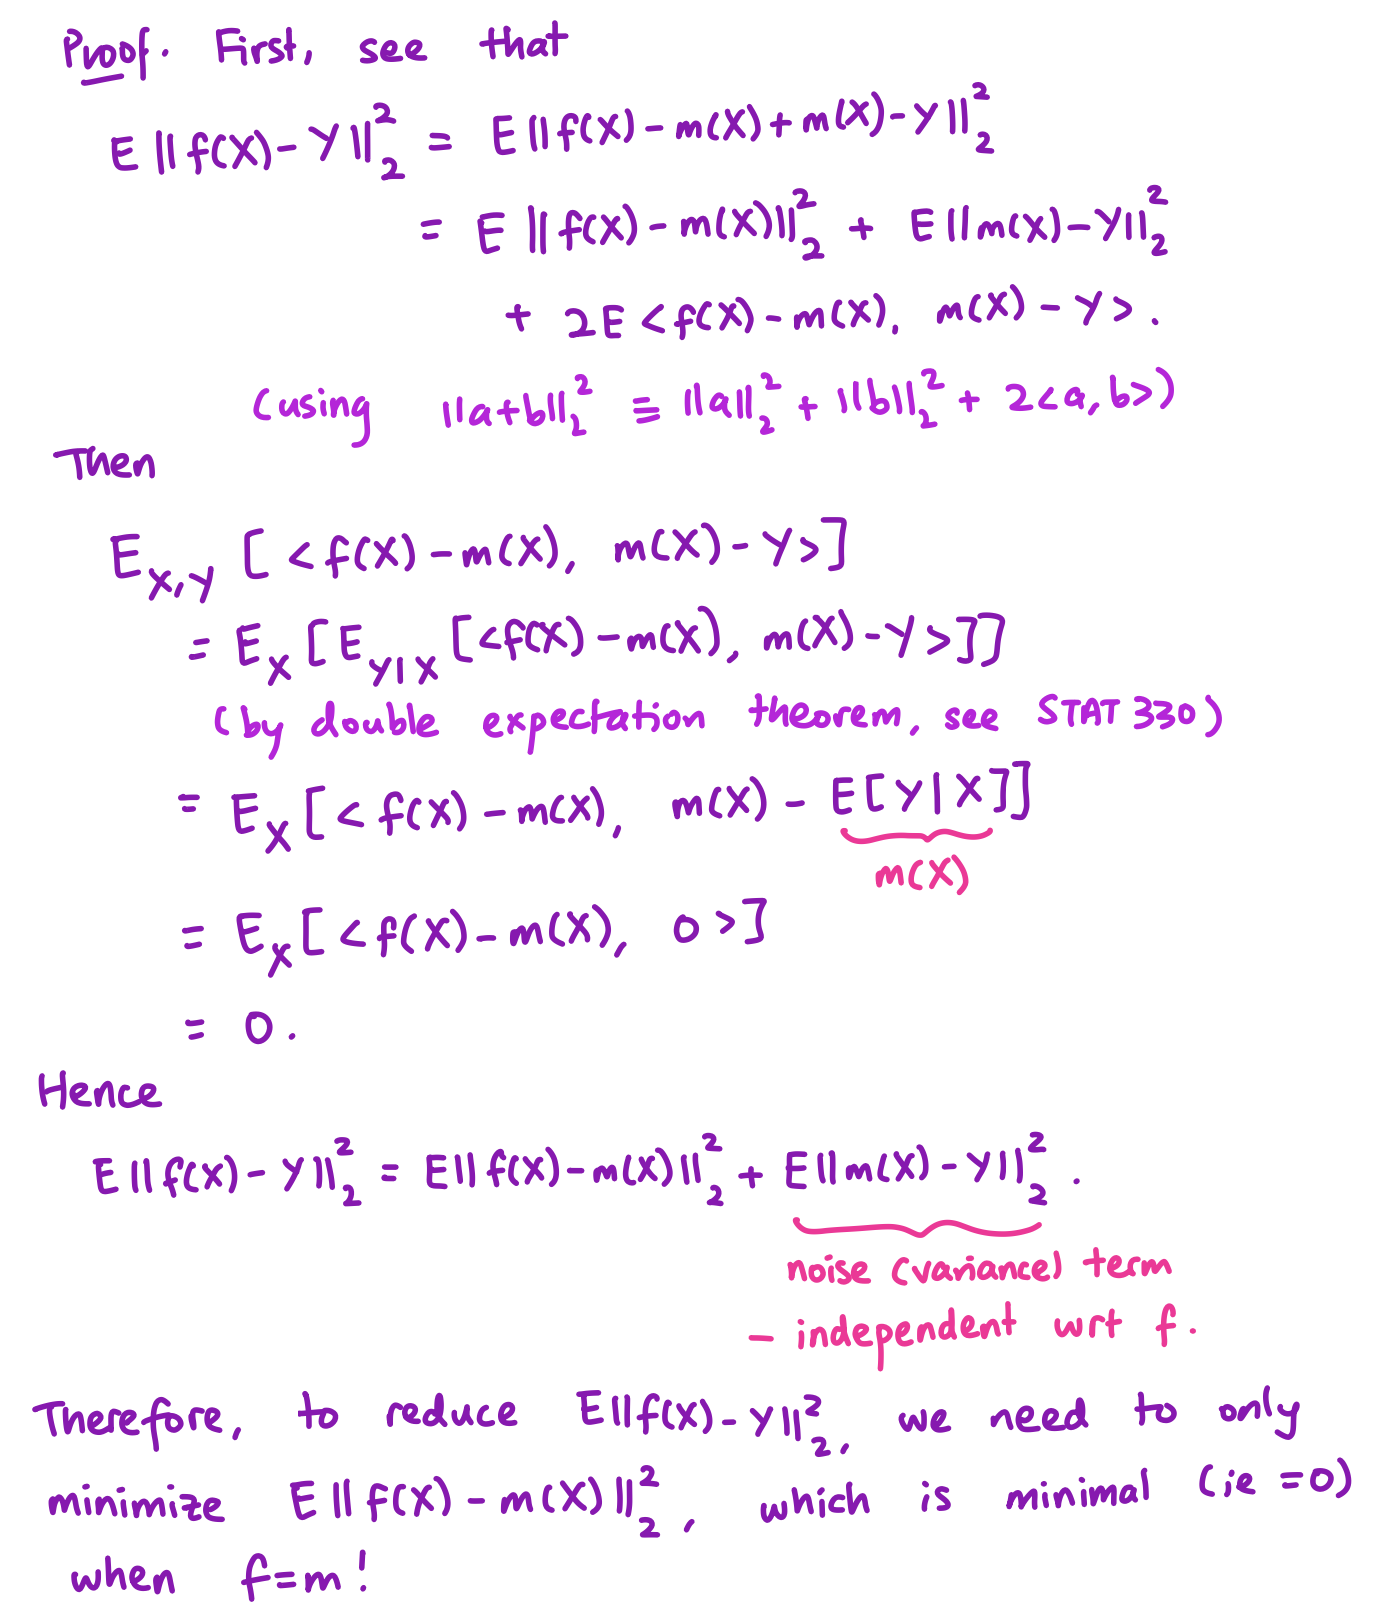 Proof. First, see that
E ||f(X) - Y||₂² = E ||f(X) - m(X) + m(X) - Y||₂²
= E ||f(X) - m(X)||₂² + E ||m(X) - Y||₂²
+ 2E <f(X) - m(X), m(X) - Y>.
(using ||a+b||₂² ≡ ||a||₂² + ||b||₂² + 2<a,b>)
Then
E_{X,Y} [<f(X) - m(X), m(X) - Y>]
= E_X [E_{Y|X} [<f(X) - m(X), m(X) - Y>]]
(by double expectation theorem, see STAT 330)
= E_X [<f(X) - m(X), m(X) - E[Y|X]]]
m(X)
= E_X [<f(X) - m(X), 0>]
= 0.
Hence
E||f(X) - Y||₂² = E||f(X) - m(X)||₂² + E||m(X) - Y||₂².
noise (variance) term
- independent wrt f.
Therefore, to reduce E||f(X) - Y||₂², we need to only
minimize E||f(X) - m(X)||₂², which is minimal (ie =0)
when f=m!